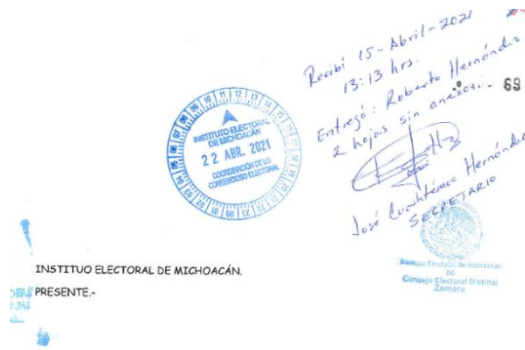 Recibí 15-Abril-2021
13:13 hrs.
Entregó: Roberto Hernández
2 hojas sin anexos.
69
José Cuauhtémoc Hernández
SECRETARIO
INSTITUTO ELECTORAL
DE MICHOACÁN
22 ABR. 2021
COORDINACIÓN DE LO
CONTENCIOSO ELECTORAL
Instituto Electoral de Michoacán
Consejo Electoral Distrital
Zamora
INSTITUO ELECTORAL DE MICHOACÁN.
PRESENTE.-